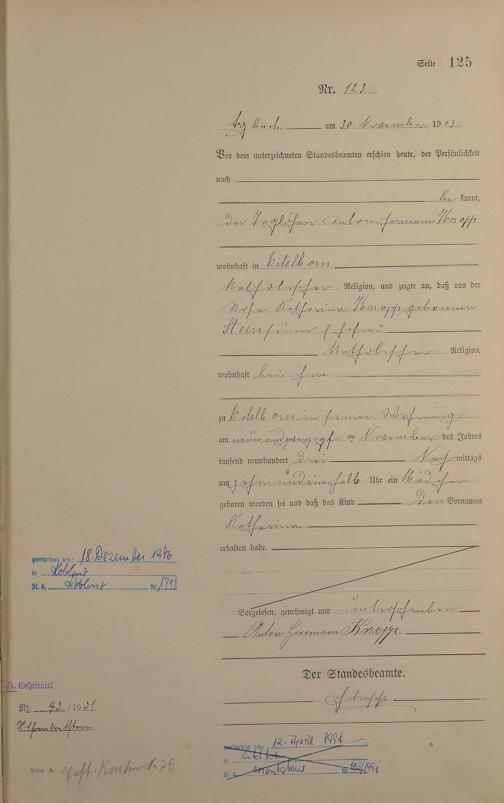 Seite 125
Nr. 123
am 30. November 1903.
Vor dem unterzeichneten Standesbeamten erschien heute, der Persönlichkeit
nach
be kannt,
der Taglöhner Anton Hermann Knopp
wohnhaft in Eitelborn
katholischer Religion, und zeigte an, daß von der
Rosa Katharina Knopp geborenen
seiner Ehefrau
katholischer Religion,
wohnhaft bei ihm
zu Eitelborn in seiner Wohnung
am neunundzwanzigsten November des Jahres
tausend neunhundert drei Nach mittags
um zehn und einhalb Uhr ein Mädchen
geboren worden sei und daß das Kind den Vornamen
Katharina
erhalten habe.
Vorgelesen, genehmigt und unterschrieben
Anton Hermann Knopp
Der Standesbeamte.
gestorben am: 18. Dezember 1976
in Koblenz
St. A. Koblenz Nr.
Geheiratet
Nr. 43 / 1931
gestorben am: 12. April 1991
in Eitelborn
St. A. Montabaur Nr.